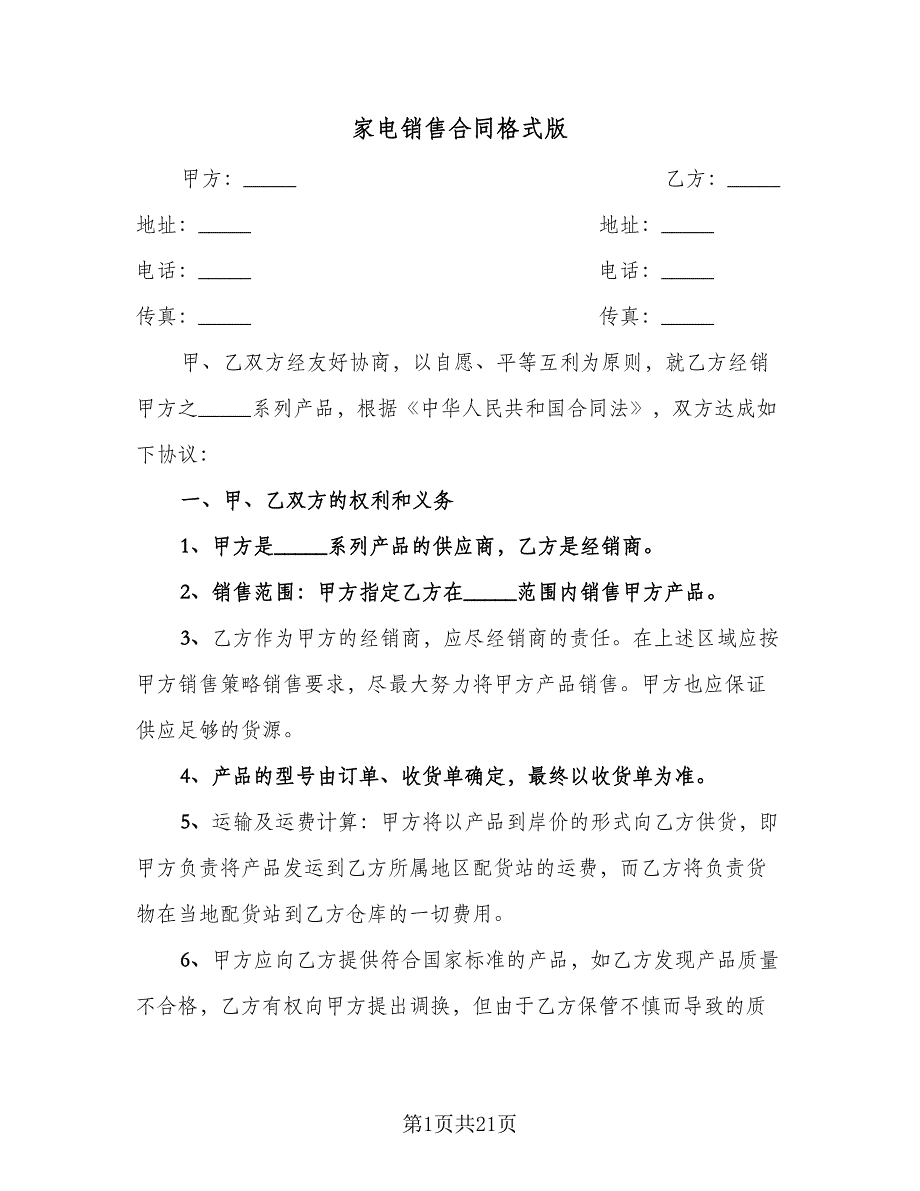 家电销售合同格式版
甲方：_____ 乙方：_____
地址：_____ 地址：_____
电话：_____ 电话：_____
传真：_____ 传真：_____
甲、乙双方经友好协商，以自愿、平等互利为原则，就乙方经销
甲方之_____系列产品，根据《中华人民共和国合同法》，双方达成如
下协议：
一、甲、乙双方的权利和义务
1、甲方是_____系列产品的供应商，乙方是经销商。
2、销售范围：甲方指定乙方在_____范围内销售甲方产品。
3、乙方作为甲方的经销商，应尽经销商的责任。在上述区域应按
甲方销售策略销售要求，尽最大努力将甲方产品销售。甲方也应保证
供应足够的货源。
4、产品的型号由订单、收货单确定，最终以收货单为准。
5、运输及运费计算：甲方将以产品到岸价的形式向乙方供货，即
甲方负责将产品发运到乙方所属地区配货站的运费，而乙方将负责货
物在当地配货站到乙方仓库的一切费用。
6、甲方应向乙方提供符合国家标准的产品，如乙方发现产品质量
不合格，乙方有权向甲方提出调换，但由于乙方保管不慎而导致的质
第1页共21页